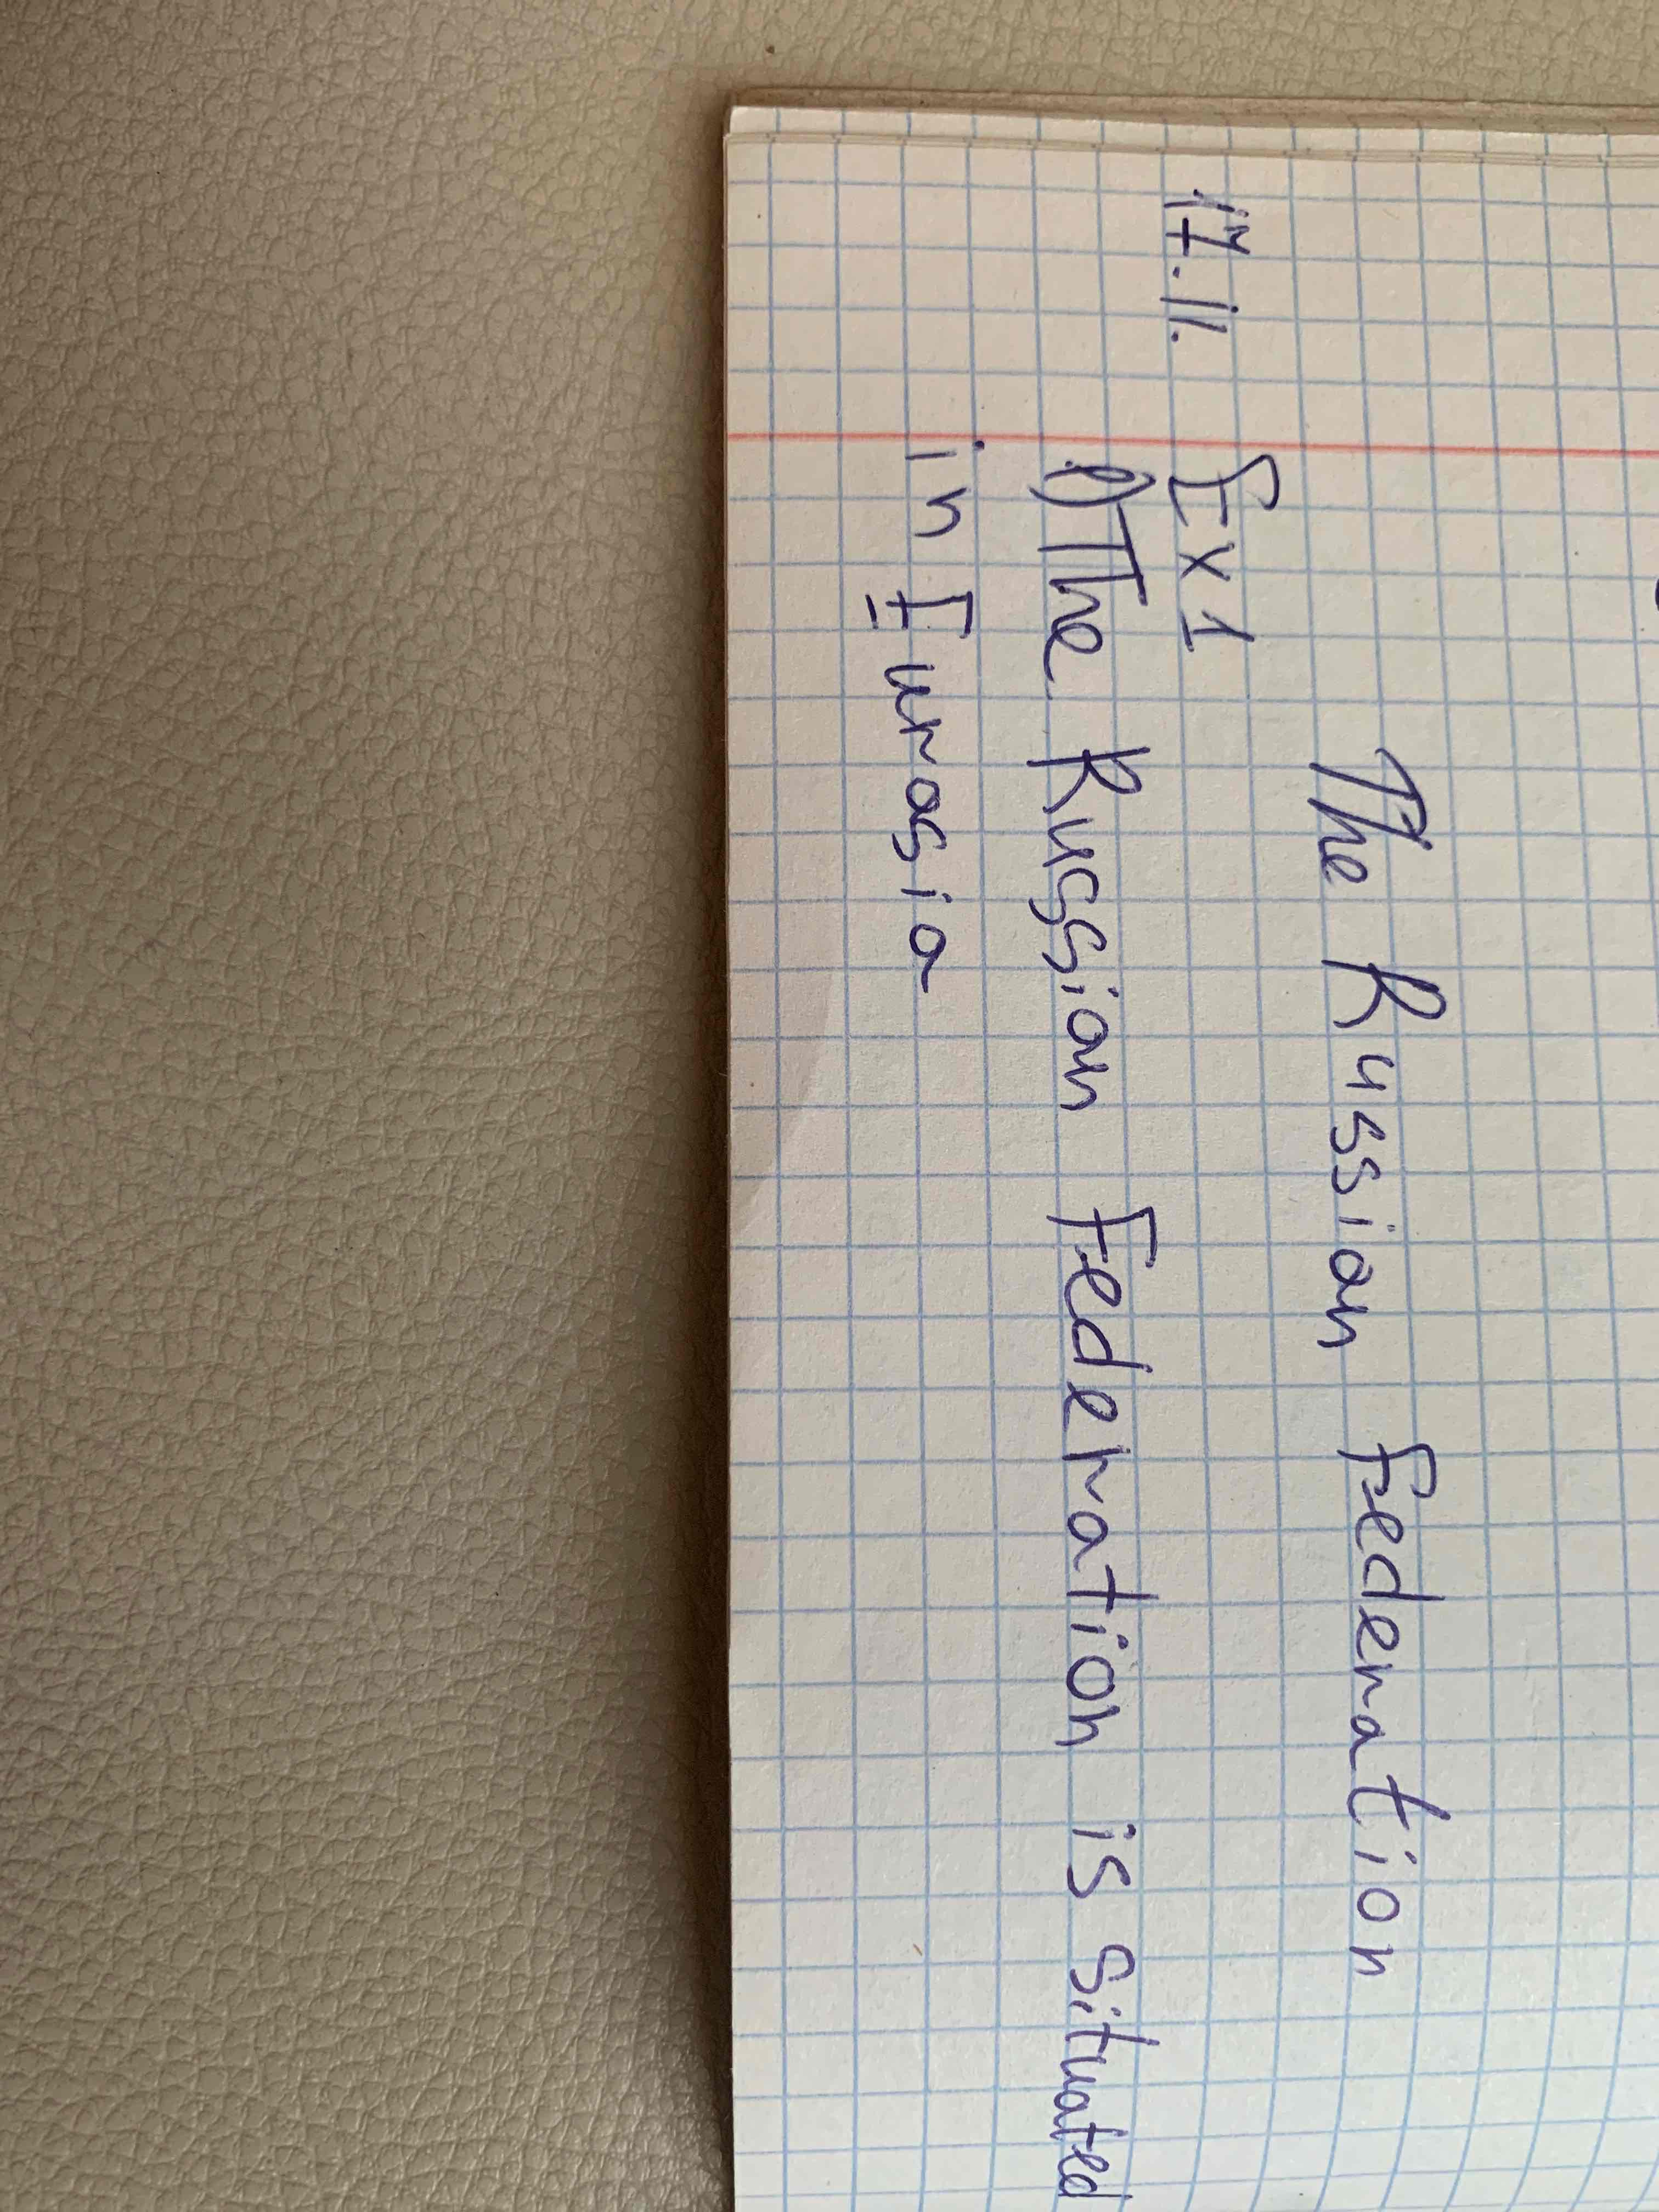 The Russian Federation
17.11. Ex 1
1) The Russian Federation is situated
in Eurasia